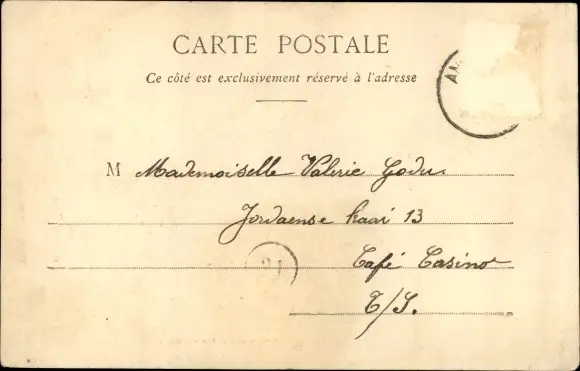 CARTE POSTALE
Ce côté est exclusivement réservé à l'adresse
M Mademoiselle Valerie Godu.
Jordaense kaai 13
Café Casino
E/S.
21